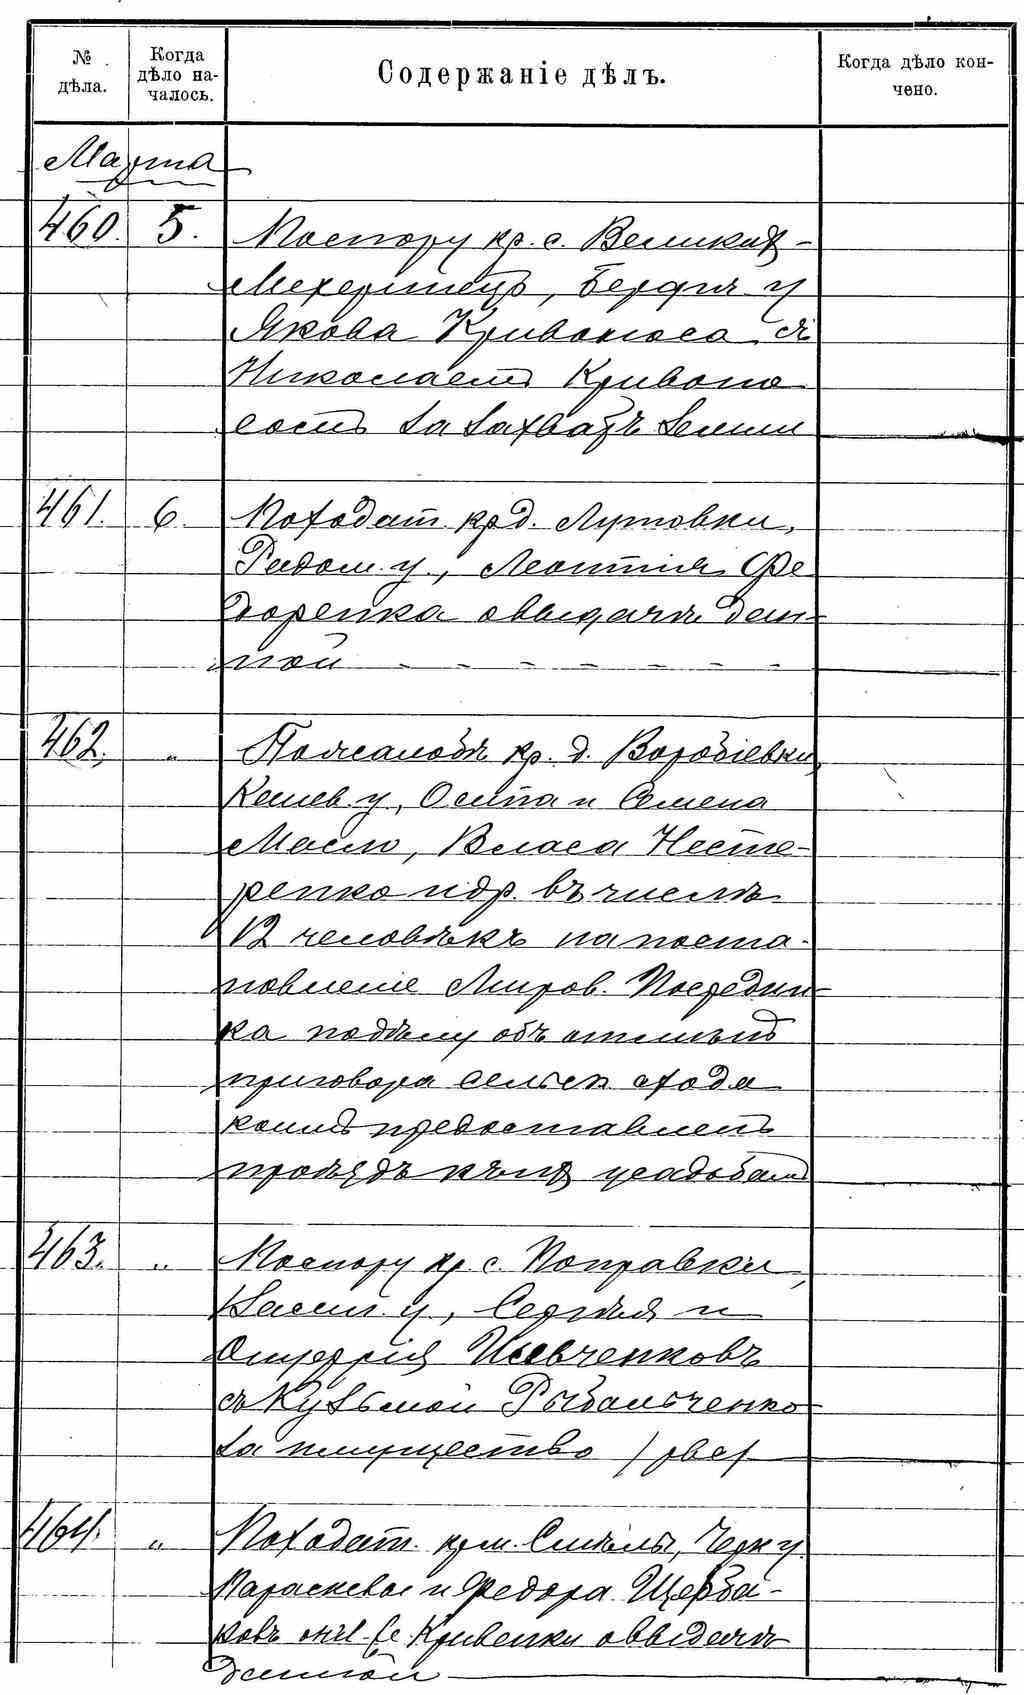 № дѣла.
Когда дѣло на-
чалось.
Содержаніе дѣлъ.
Когда дѣло кон-
чено.
Марта
460. 5. По спору кр. с. Великихъ-
Мехеринецъ, Бердич у
Якова Кривоноса съ
Николаемъ Кривоно
сомъ за захватъ земли
461. 6. По ходат. кр д. Лутовки,
Радом. у., Леонтія Фе
доренка о выдачѣ дан-
ной
462. „ По жалобѣ кр. д. Воробіевки,
Кіев. у, Осипа и Семена
Масло, Власа Несте-
ренко и др. въ числѣ
12 человѣкъ на поста-
новленіе Миров. Посредни-
ка по дѣлу объ отмѣнѣ
приговора сельск схода
коимъ предоставленъ
проѣздъ къ ихъ усадьбамъ
463. „ По спору кр. с. Поправки,
Васил. у., Сергѣя и
Онуфрія Шевченковъ
съ Кузьмой Рыбальченко
за имущество
464. „ По ходат. кр м. Смѣлы, Черк у.
Параскевы и Федора Щерба-
ковъ Кривенки о выдачѣ
данной